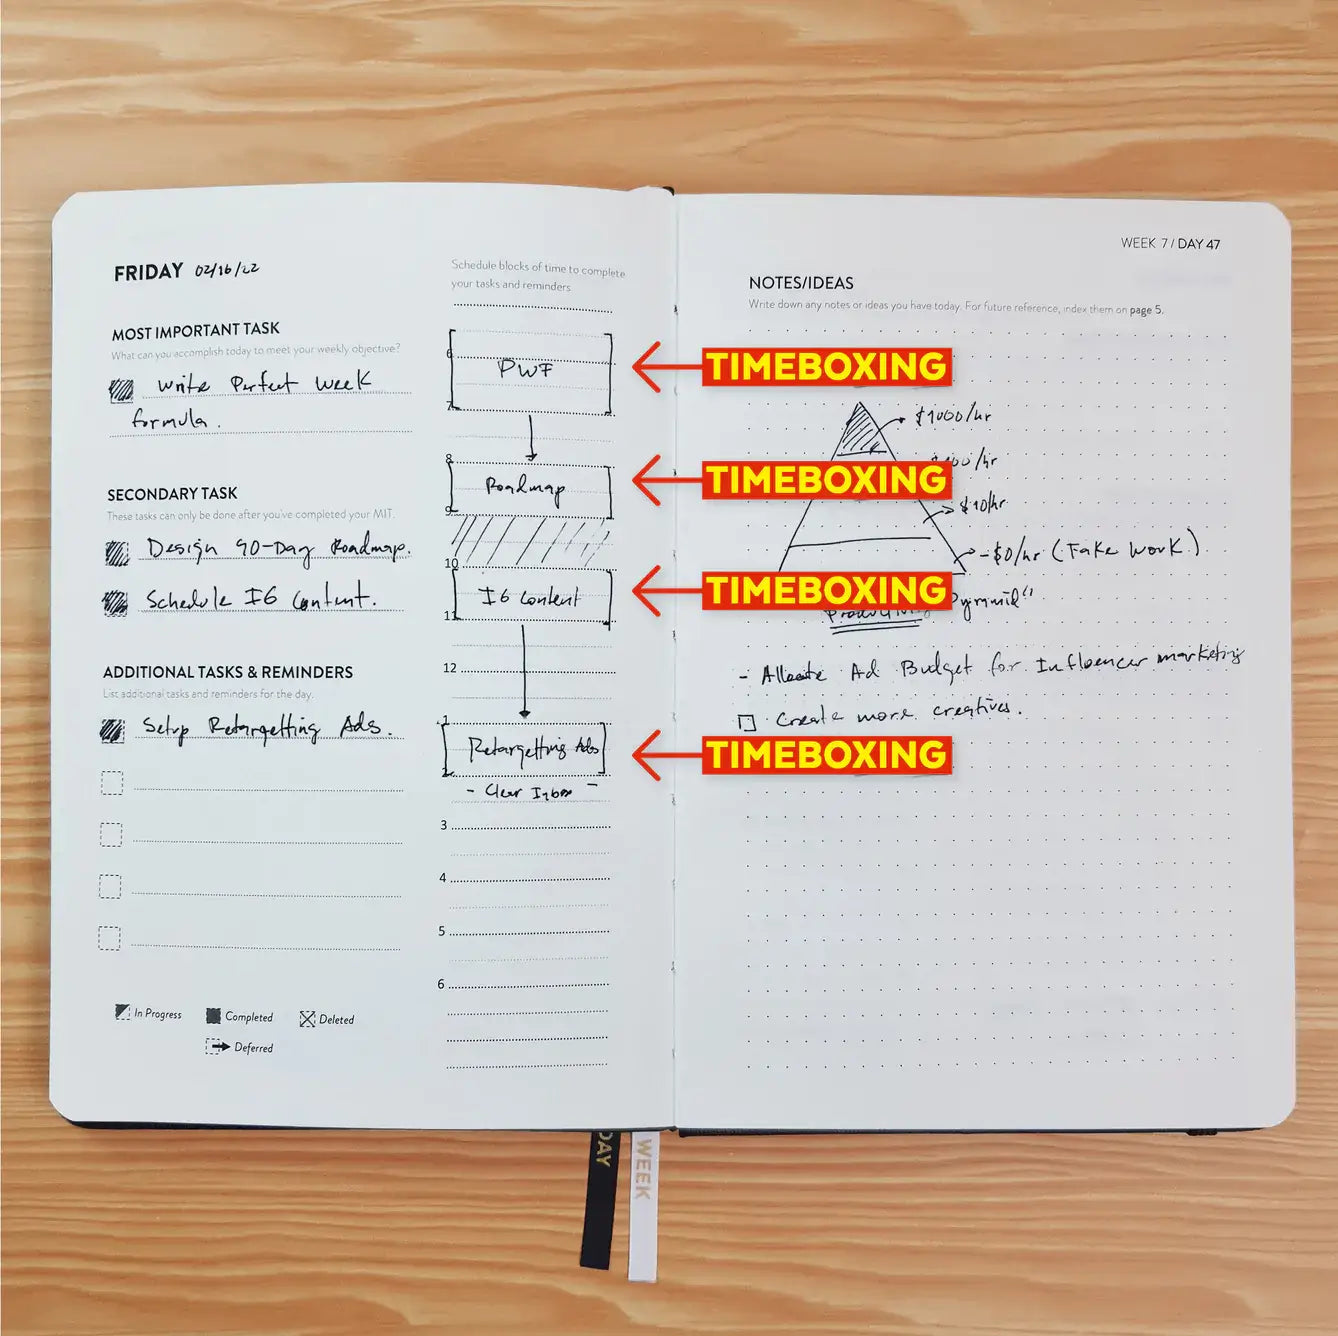 FRIDAY 02/16/22
MOST IMPORTANT TASK
What can you accomplish today to meet your weekly objective?
Write Perfect Week
formula.
SECONDARY TASK
These tasks can only be done after you've completed your MIT.
Design 90-Day Roadmap.
Schedule IG Content.
ADDITIONAL TASKS & REMINDERS
List additional tasks and reminders for the day.
Setup Retargetting Ads.
In Progress
Completed
Deleted
Deferred
Schedule blocks of time to complete
your tasks and reminders
6
PWF
7
8
Roadmap
9
10
IG Content
11
12
1
Retargetting Ads
- Clear Inbox -
3
4
5
6
WEEK 7 / DAY 47
NOTES/IDEAS
Write down any notes or ideas you have today. For future reference, index them on page 5.
TIMEBOXING
$1000/hr
TIMEBOXING
$10/hr
-$0/hr (Fake Work)
TIMEBOXING
Pyramid"
- Allocate Ad Budget for Influencer marketing
Create more creatives.
TIMEBOXING
DAY
WEEK